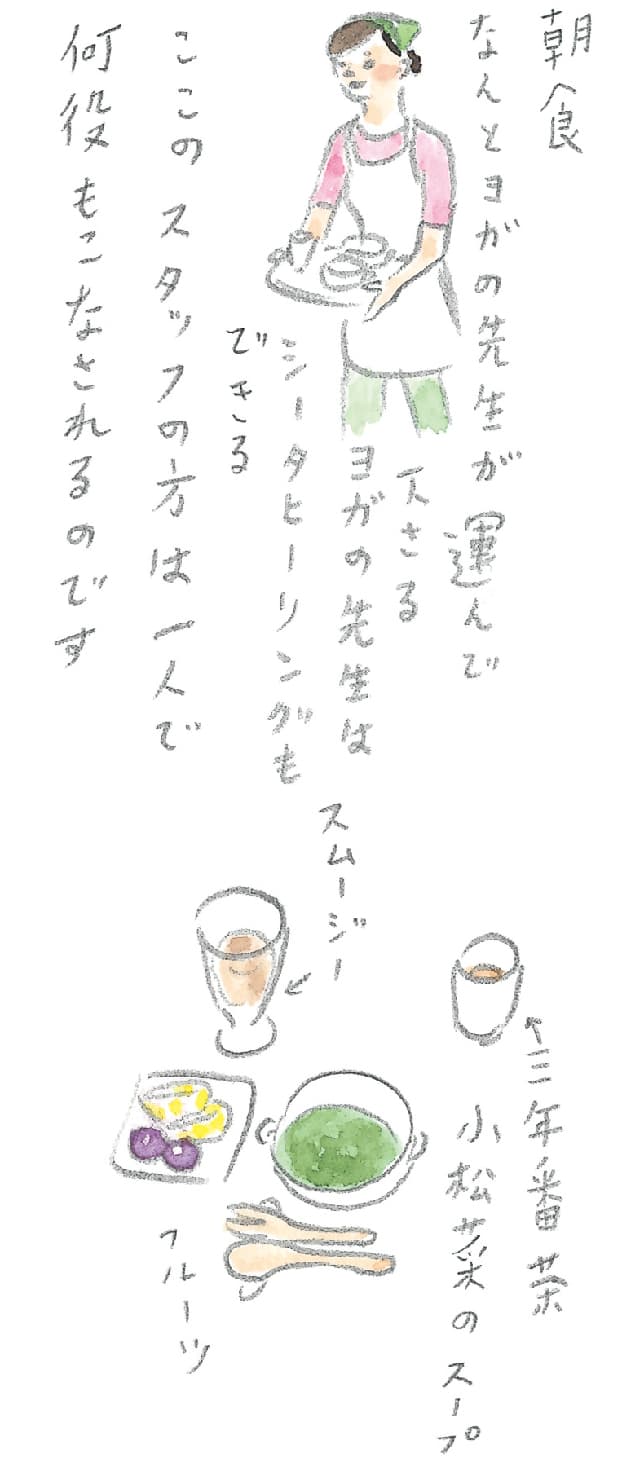 朝食
なんとヨガの先生が
運んで
下さる
ヨガの先生は
シータヒーリングも
できる
ここのスタッフの方は一人で
何役もこなされるのです
スムージー
三年番茶
小松菜のスープ
フルーツ